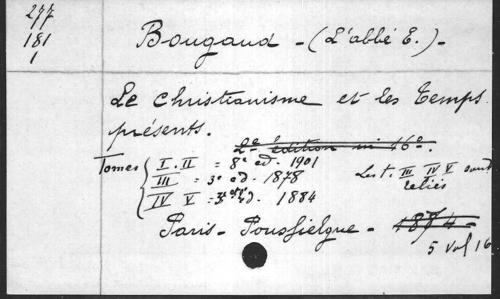 277
181
1
Bougaud - (L'abbé E.) -
Le Christianisme et les Temps
présents.
2e édition in 16°.
Tomes { I. II = 8e ed. 1901
III = 3e ed. 1878
IV V = 3e ed. 1884
Les t. III IV V sont
reliés
Paris - Poussielgue - 1874 -
5 vol 16